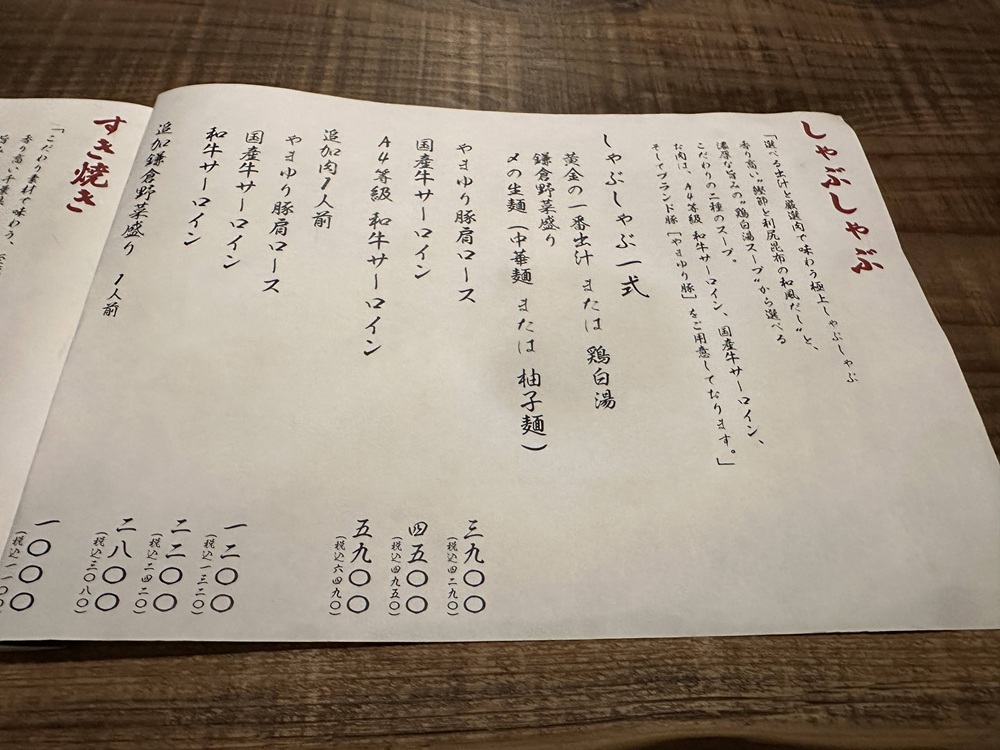 しゃぶしゃぶ
「選べる出汁と厳選肉で味わう極上しゃぶしゃぶ
香り高い"鰹節と利尻昆布の和風だし"と、
濃厚な旨みの"鶏白湯スープ"から選べる
こだわりの二種のスープ。
お肉は、A4等級 和牛サーロイン、国産牛サーロイン、
そしてブランド豚「やまゆり豚」をご用意しております。」
しゃぶしゃぶ一式
黄金の一番出汁 または 鶏白湯
鎌倉野菜盛り
〆の生麺(中華麺 または 柚子麺)
やまゆり豚肩ロース 三九〇〇
(税込四二九〇)
国産牛サーロイン 四五〇〇
(税込四九五〇)
A4等級 和牛サーロイン 五九〇〇
(税込六四九〇)
追加肉1人前
やまゆり豚肩ロース 一二〇〇
(税込一三二〇)
国産牛サーロイン 二二〇〇
(税込二四二〇)
和牛サーロイン 二八〇〇
(税込三〇八〇)
追加鎌倉野菜盛り 1人前 一〇〇〇
(税込一一〇〇
すき焼き
「こだわり素材で味わう、
香り高い